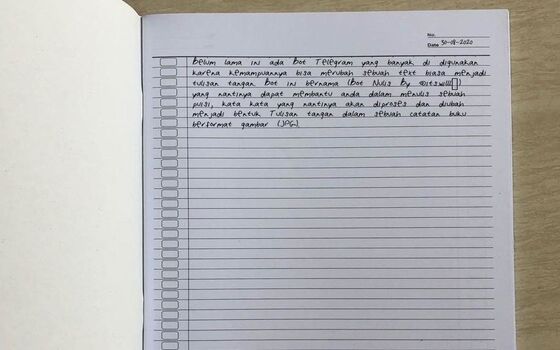 No.
Date 30-08-2020
Belum lama ini ada Bot Telegram yang banyak di digunakan
karena kemampuannya bisa merubah sebuah text biasa menjadi
tulisan tangan. Bot ini bernama (Bot Nulis By @itswill)
yang nantinya dapat membantu anda dalam menulis sebuah
puisi, kata kata yang nantinya akan diproses dan diubah
menjadi bentuk Tulisan tangan dalam sebuah catatan buku
berformat gambar (JPG).